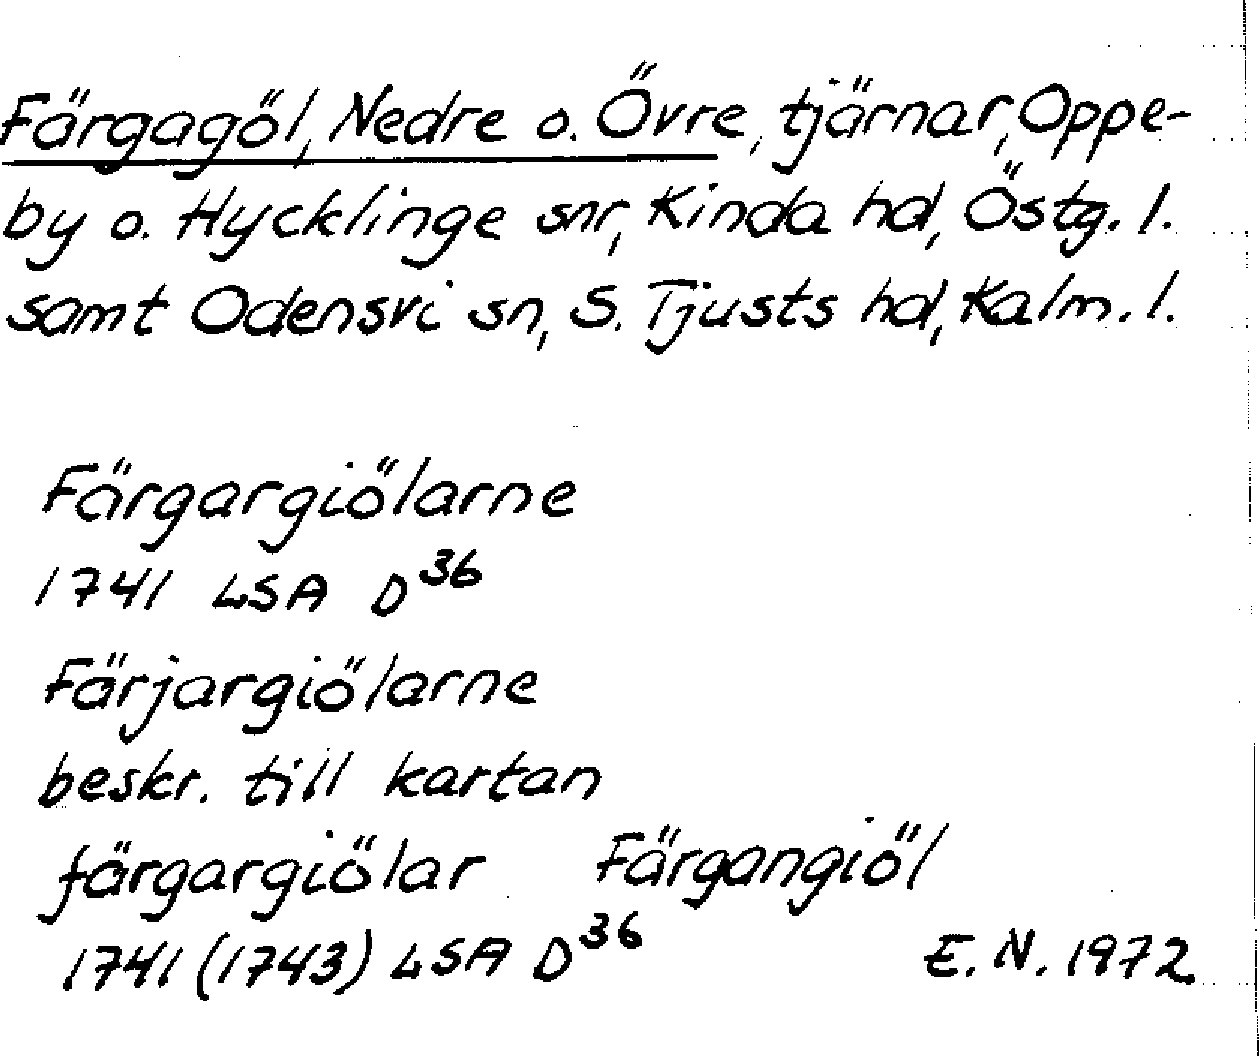 Färgagöl, Nedre o. Övre, tjärnar, Oppe-
by o. Hycklinge snr, Kinda hd, Östg. l.
samt Odensvi sn, S. Tjusts hd, Kalm. l.
Färgargiölarne
1741 LSA D36
Färjargiölarne
beskr. till kartan
färgargiölar Färgangiöl
1741 (1743) LSA D36 E. N. 1972